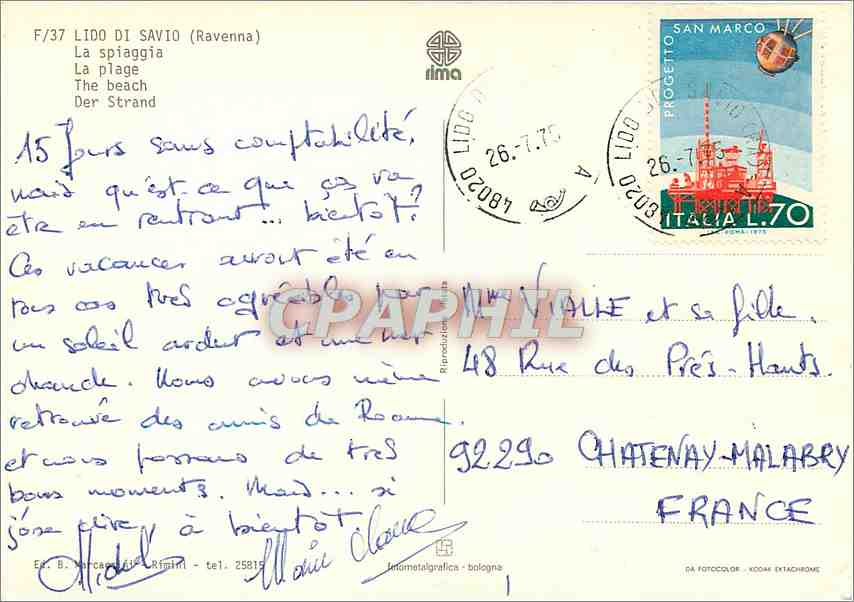 F/37 LIDO DI SAVIO (Ravenna)
La spiaggia
La plage
The beach
Der Strand
rima
PROGETTO SAN MARCO
ITALIA L.70
I.P.S.-ROMA-1975
48020 LIDO D
26.-7.75
A
48020 LIDO DI SAVIO (RA)
26.-7.75
A
15 Jours sans comptabilité,
mais qu'est-ce que ça va
être en rentrant... bientôt?
Ces vacances auront été en
tous cas très agréables, par
un soleil ardent et une mer
chaude. Nous avons même
retrouvé des amis de Roanne.
et nous passons de très
bons moments. Mais... si
j'ose dire, à bientôt.
Michel
Marie Chare
Mme VIALLE et sa fille.
48 Rue des Prés-Hauts.
92290 CHATENAY-MALABRY
FRANCE
CPAPHIL
Riproduzione vietata
Ed. B. Marcaccini - Rimini - tel. 25815
fotometalgrafica - bologna
DA FOTOCOLOR - KODAK EKTACHROME